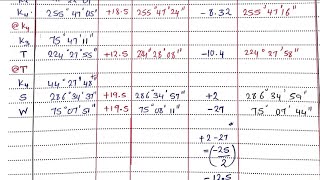 K4 255°47'05" +18.5 255°47'24" -8.32 255°47'16"
@K4
K4 75°47'11"
T 224°27'55" +12.5 224°28'08" -10.4 224°27'58"
@T
K4 44°27'48"
S 286°34'37" +19.5 286°34'57" +2 286°34'59"
W 75°07'51" +19.5 75°08'11" -27 75°07'44"
+2-27
=(-25)
2
-12.5